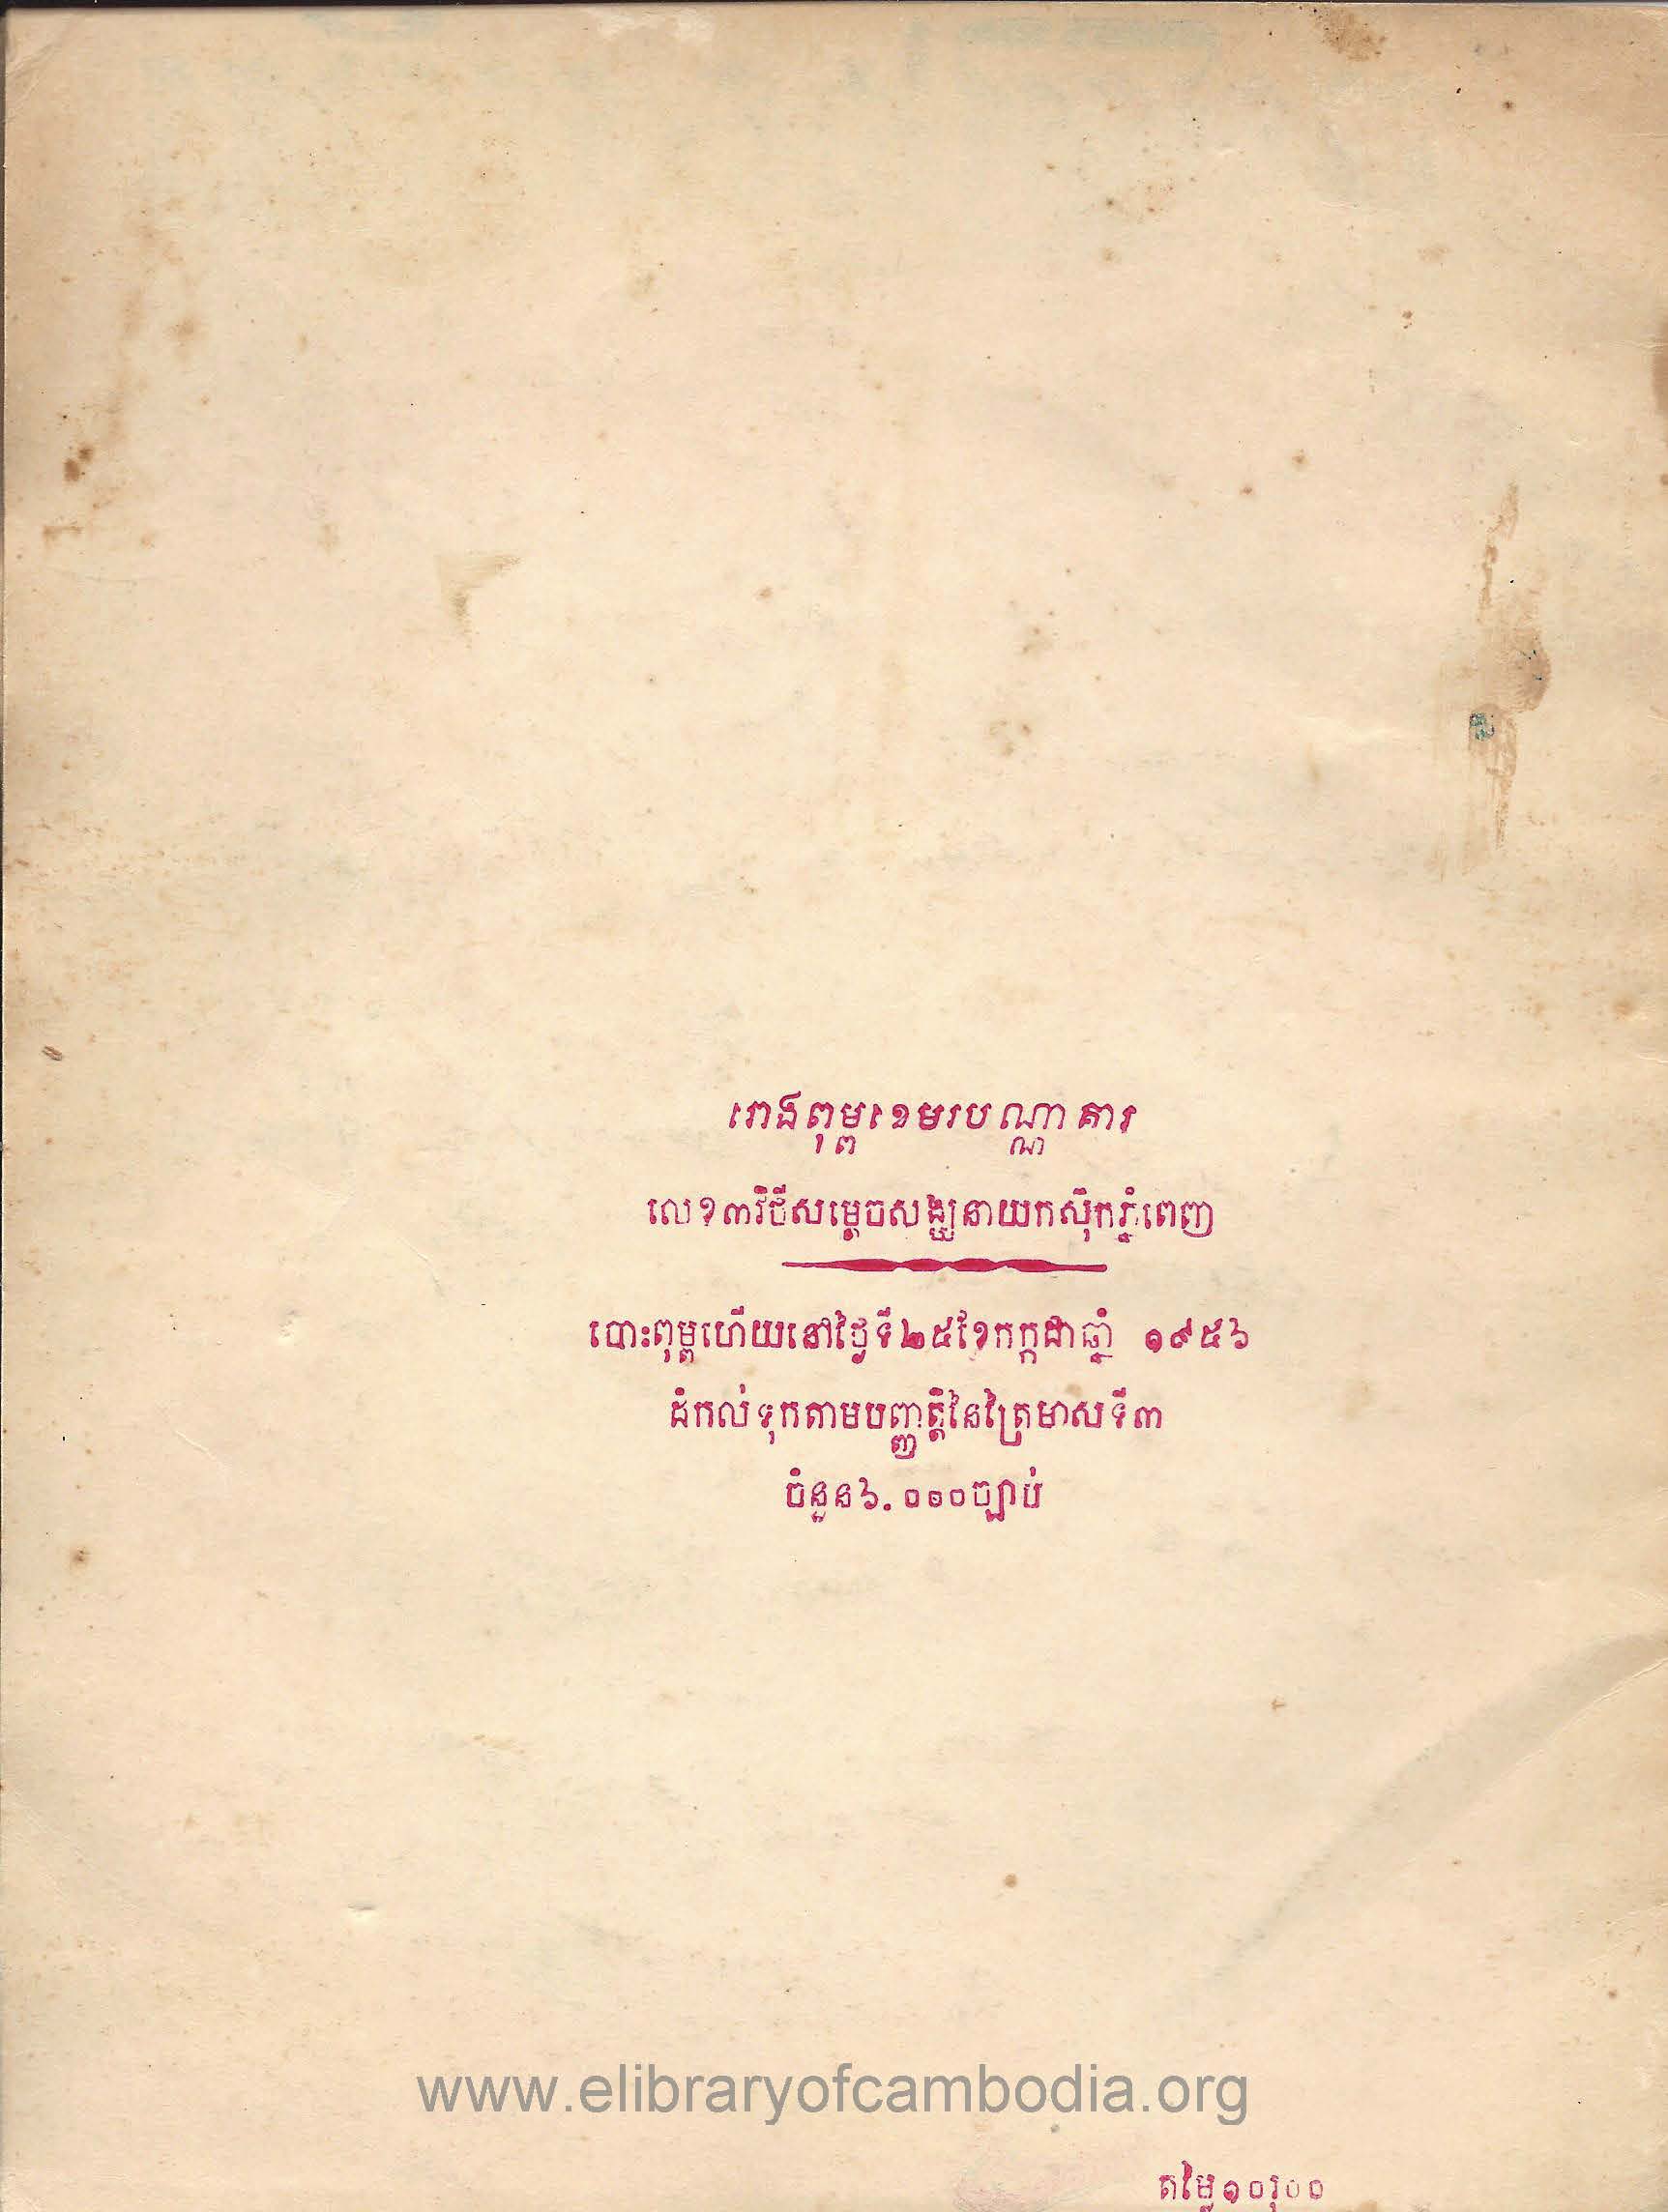 រោងពុម្ពខេមរបណ្ណាគារ
លេខ៣វិថីសម្តេចសង្ឃនាយកស៊ុកភ្នំពេញ
បោះពុម្ពហើយនៅថ្ងៃទី២៥ខែកក្កដាឆ្នាំ ១៩៥៦
ដំកល់ទុកតាមបញ្ញត្តិនៃត្រៃមាសទី៣
ចំនួន៦.០០០ច្បាប់
www.elibraryofcambodia.org
តម្លៃ១០រ០០